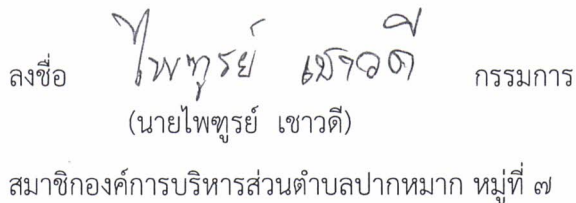 ลงชื่อ ไพฑูรย์ เชาวดี กรรมการ
(นายไพฑูรย์ เชาวดี)
สมาชิกองค์การบริหารส่วนตำบลปากหมาก หมู่ที่ ๗